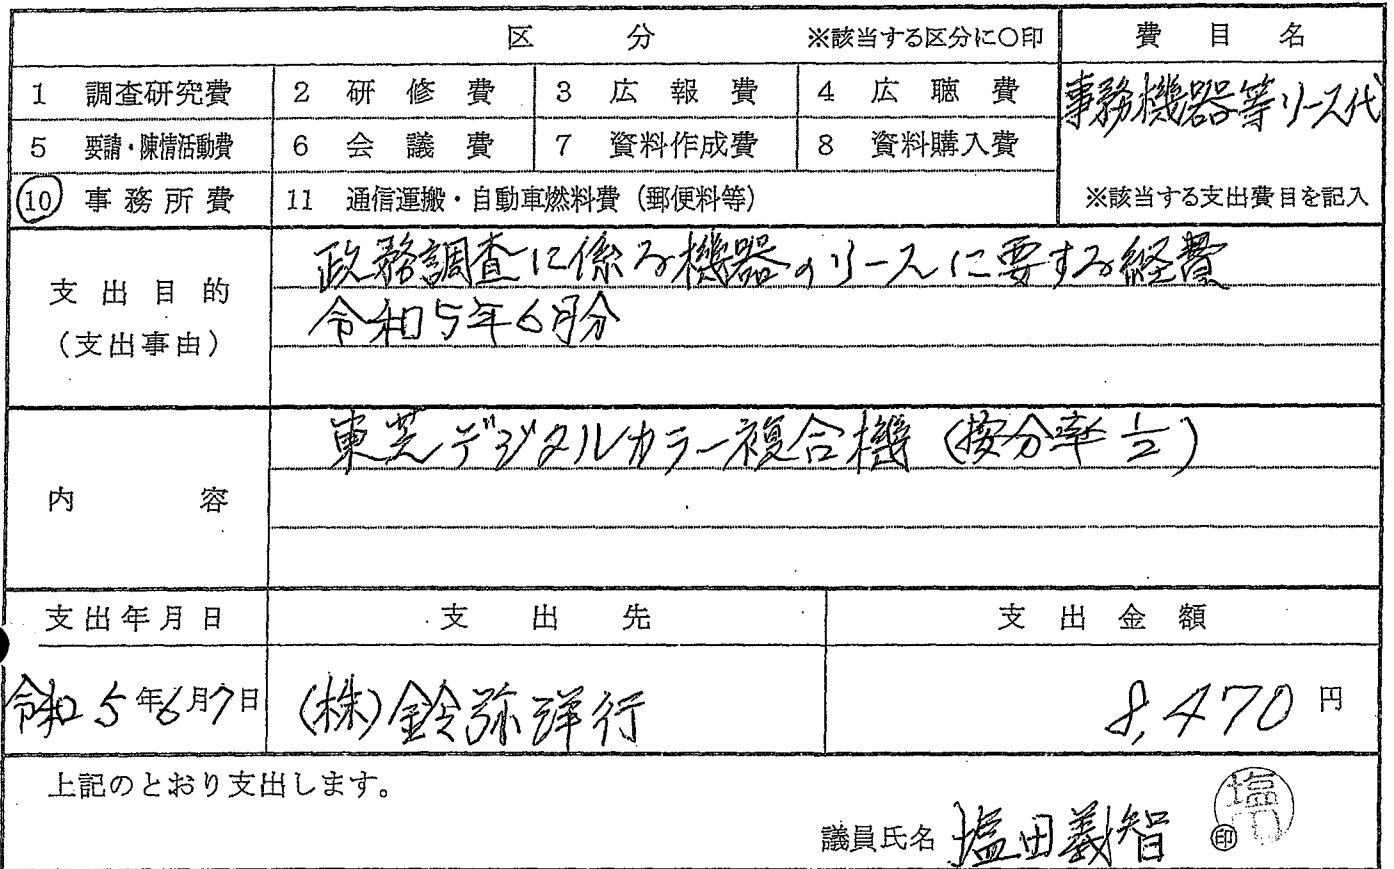 区 分 ※該当する区分に○印
費 目 名
1 調査研究費 2 研修費 3 広報費 4 広聴費
事務機器等リース代
5 要請・陳情活動費 6 会議費 7 資料作成費 8 資料購入費
10 事務所費 11 通信運搬・自動車燃料費（郵便料等）
※該当する支出費目を記入
支出目的
（支出事由）
政務調査に係る機器のリースに要する経費
令和5年6月分
内 容
東芝デジタルカラー複合機（按分率 1/2）
支出年月日 支 出 先 支 出 金 額
令和5年6月7日 (株)鈴弥洋行 8,470円
上記のとおり支出します。
議員氏名 塩田義智 印
塩田